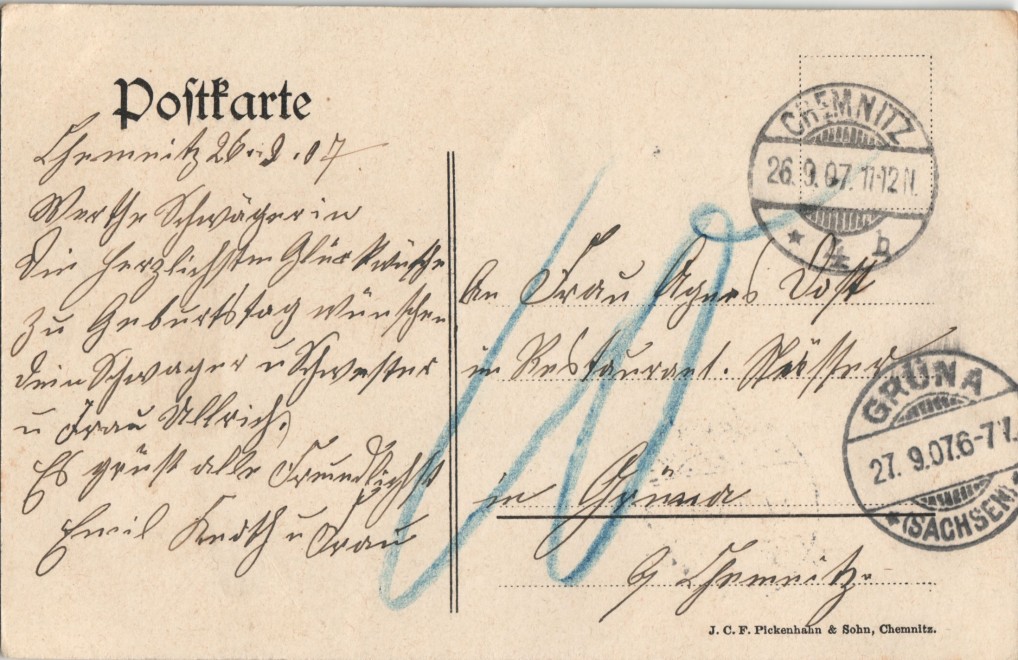 Postkarte
Chemnitz 26.9.07
Werthe Schwägerin
Die Herzlichsten Glückwünsche
zu Geburtstag wünschen
dein Schwager u Schwester
u Frau Ullrich,
Es grüst alle Freundlichst
Emil Knoth u Frau
CHEMNITZ
26.9.07. 11-12N.
b
An Frau Agnes Dost
in Restaurant.
in Grüna
b/ Chemnitz.
GRÜNA
27.9.07.6-7V.
(SACHSEN)
J. C. F. Pickenhahn & Sohn, Chemnitz.